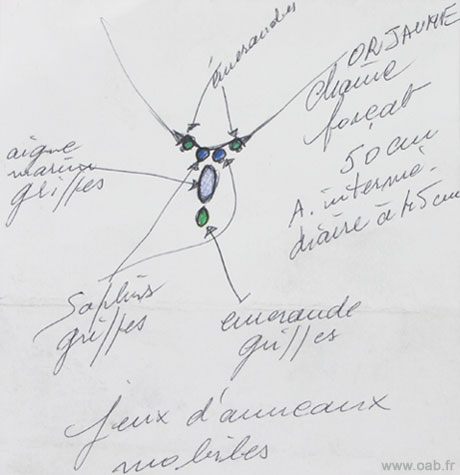 émeraudes
OR JAUNE
chaîne
forçat
50 cm
A. intermé-
diaire à 45cm
aigue
marine
griffes
saphirs
griffes
émeraude
griffes
jeux d'anneaux
mobiles
www.oab.fr